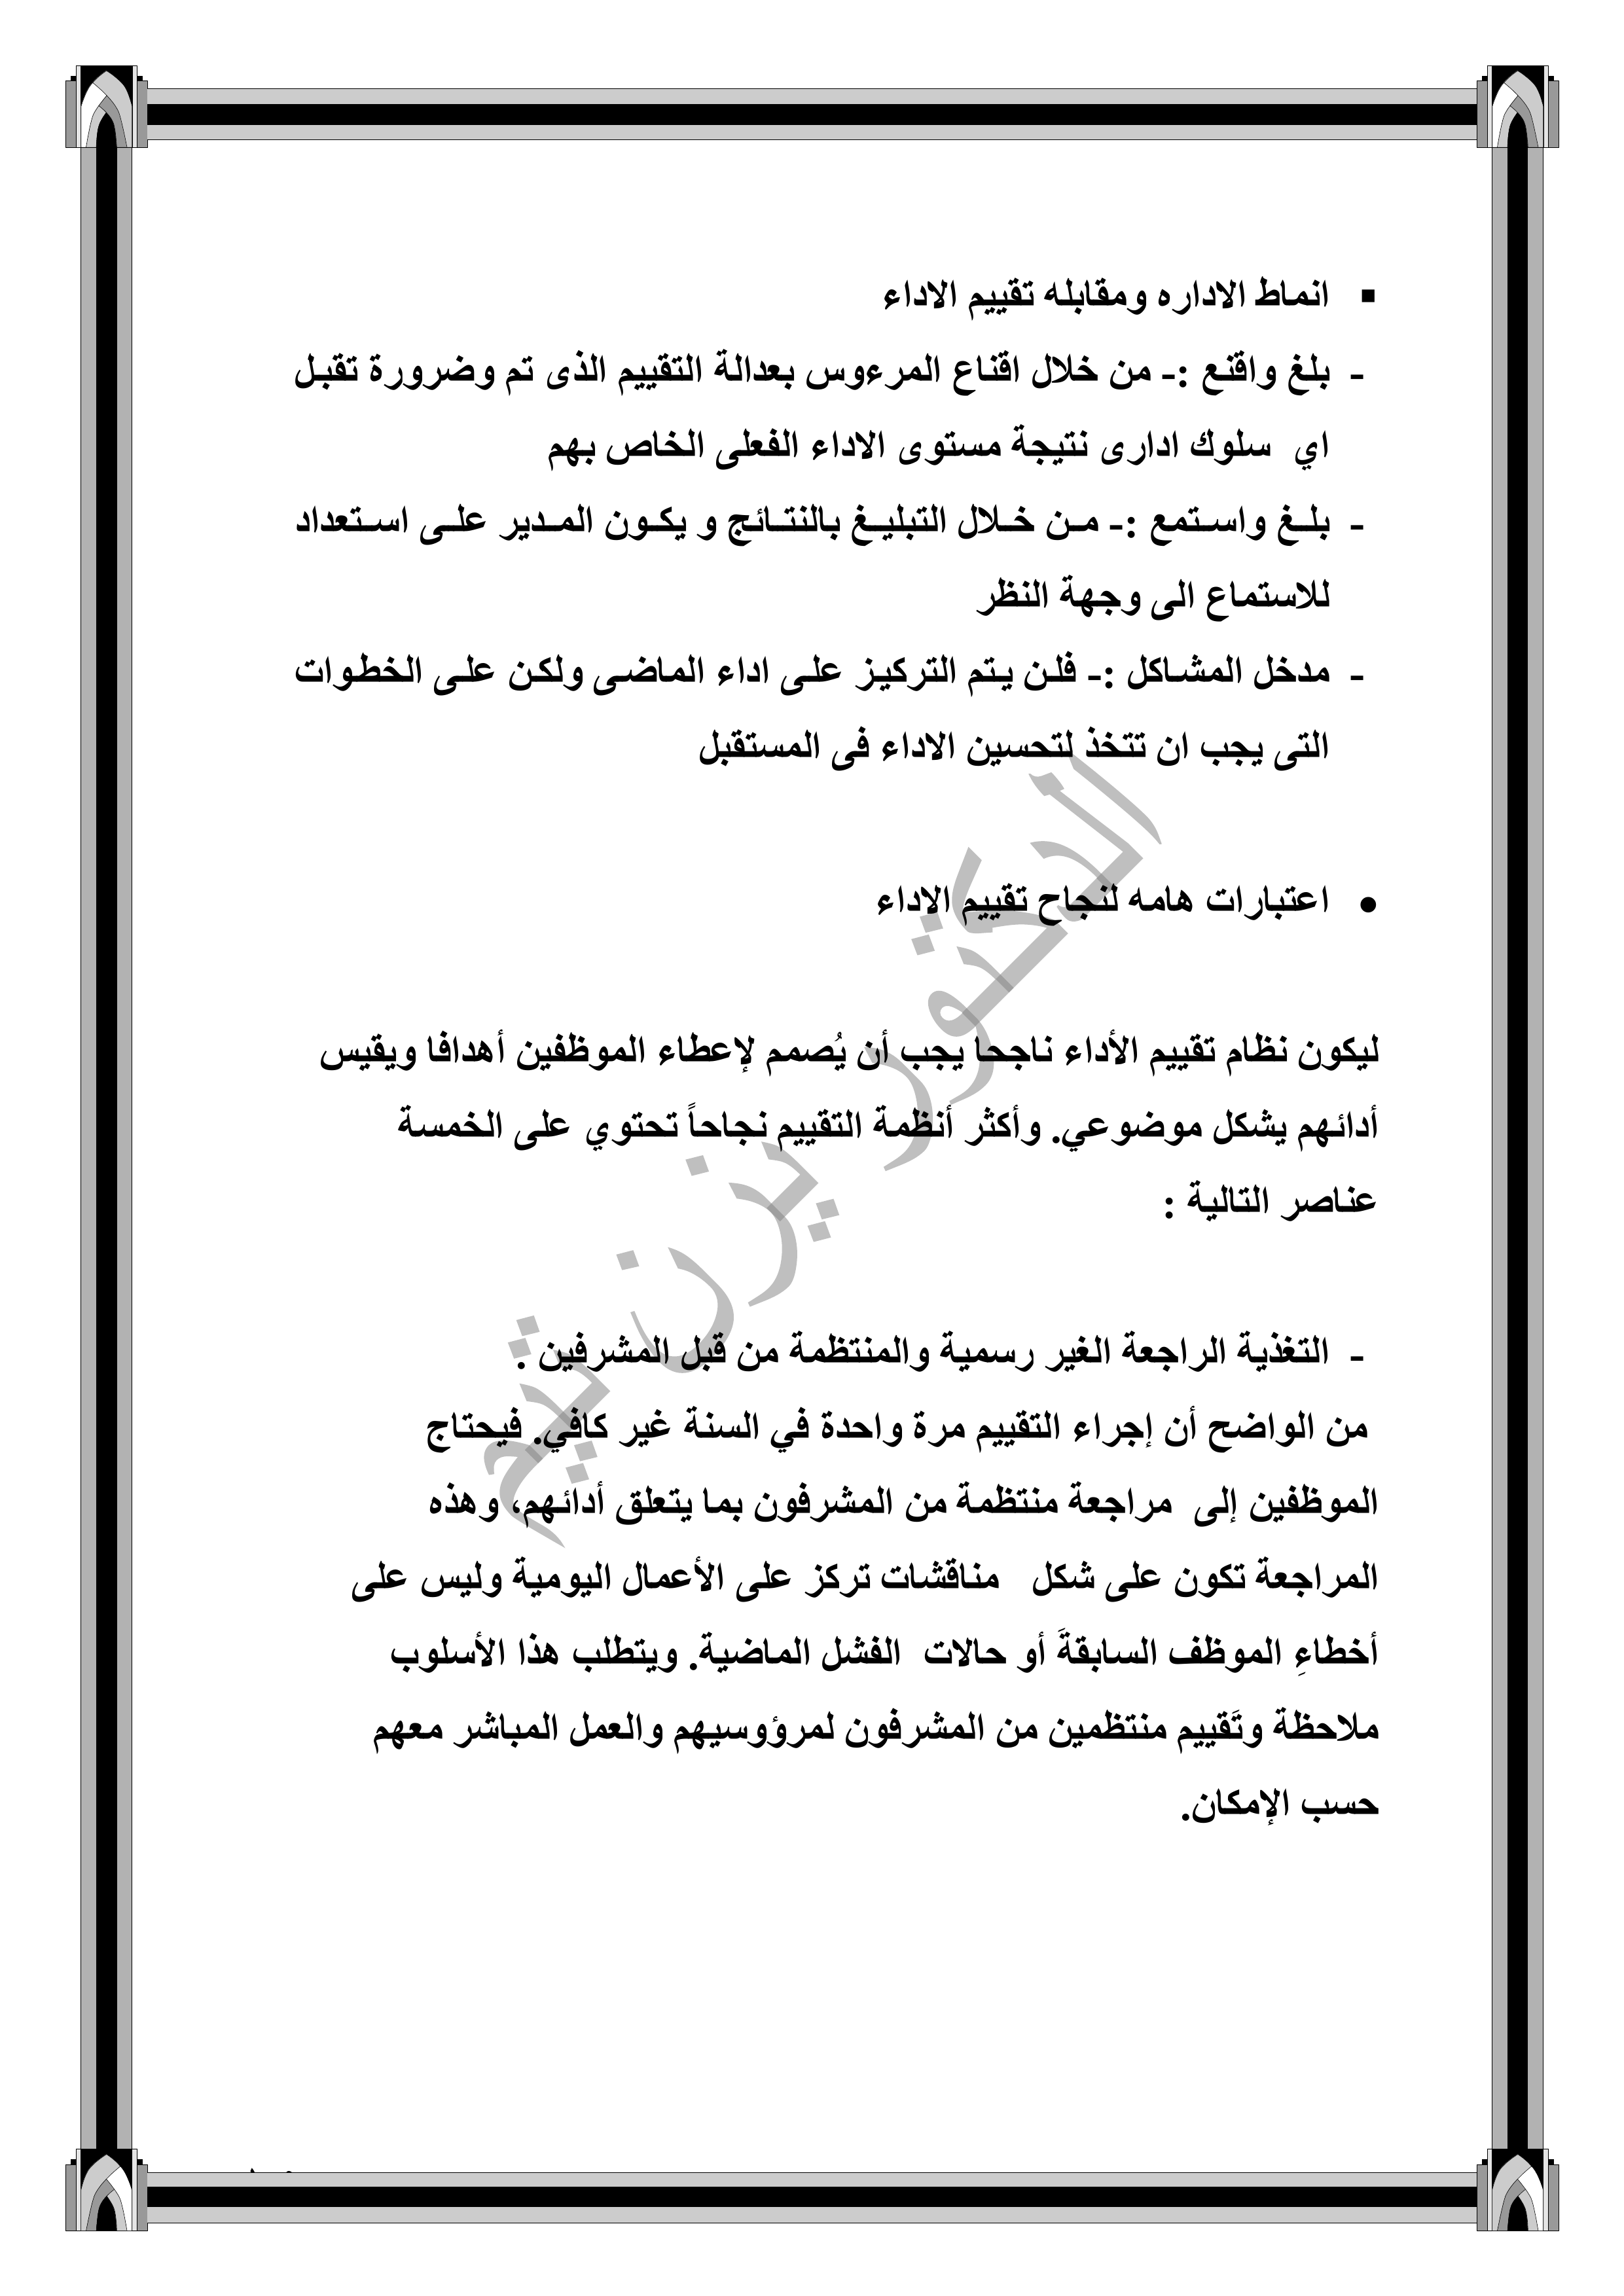 ▪ انماط الاداره ومقابله تقييم الاداء
- بلغ واقنع :- من خلال اقناع المرءوس بعدالة التقييم الذى تم وضرورة تقبل
اي سلوك ادارى نتيجة مستوى الاداء الفعلى الخاص بهم
- بلغ واستمع :- من خلال التبليغ بالنتائج و يكون المدير على استعداد
للاستماع الى وجهة النظر
- مدخل المشاكل :- فلن يتم التركيز على اداء الماضى ولكن على الخطوات
التى يجب ان تتخذ لتحسين الاداء فى المستقبل
• اعتبارات هامه لنجاح تقييم الاداء
ليكون نظام تقييم الأداء ناجحا يجب أن يُصمم لإعطاء الموظفين أهدافا ويقيس
أدائهم يشكل موضوعي. وأكثر أنظمة التقييم نجاحاً تحتوي على الخمسة
عناصر التالية :
- التغذية الراجعة الغير رسمية والمنتظمة من قبل المشرفين :
من الواضح أن إجراء التقييم مرة واحدة في السنة غير كافي. فيحتاج
الموظفين إلى مراجعة منتظمة من المشرفون بما يتعلق أدائهم، وهذه
المراجعة تكون على شكل مناقشات تركز على الأعمال اليومية وليس على
أخطاءِ الموظف السابقةَ أو حالات الفشل الماضية. ويتطلب هذا الأسلوب
ملاحظة وتَقييم منتظمين من المشرفون لمرؤوسيهم والعمل المباشر معهم
حسب الإمكان.
الدكتور يزن تيم